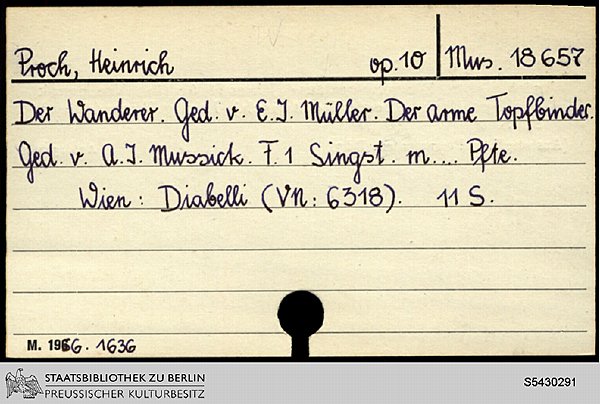 Proch, Heinrich op. 10 Mus. 18 657
Der Wanderer. Ged. v. E. J. Müller. Der arme Topfbinder.
Ged. v. A. J. Mussick. F. 1 Singst. m.... Pfte.
Wien: Diabelli (VN: 6318). 11 S.
M. 1966. 1636
STAATSBIBLIOTHEK ZU BERLIN
PREUSSISCHER KULTURBESITZ
S5430291